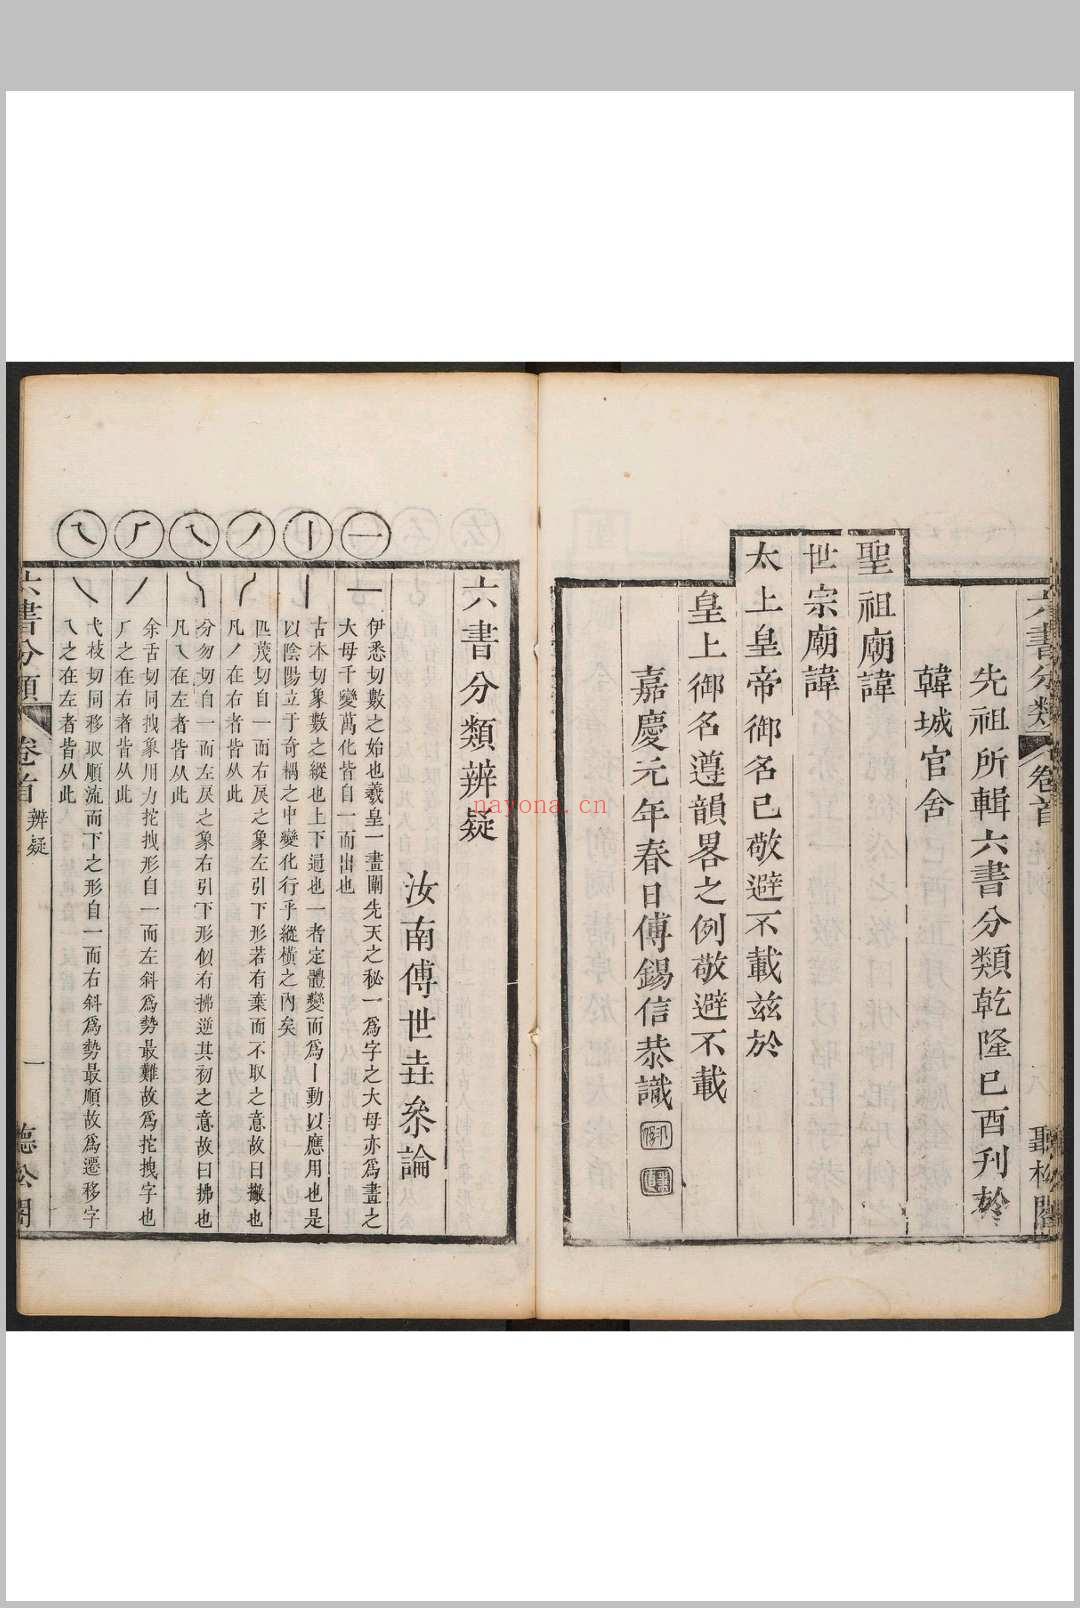 六書分類 卷首 聽松閣
先祖所輯六書分類乾隆己酉刋於
韓城官舍
聖祖廟諱
世宗廟諱
太上皇帝御名已敬避不載兹於
皇上御名遵韻畧之例敬避不載
嘉慶元年春日傅錫信恭識
六書分類辨疑
汝南傅世垚叅論
一
一 伊悉切數之始也羲皇一畫闢先天之秘一爲字之大母亦爲畫之
大母千變萬化皆自一而出也
丨
丨 古本切象數之縱也上下通也一者定體變而爲丨動以應用也是
以陰陽立于奇耦之中變化行乎縱橫之內矣
丿
丿 匹蔑切自一而右戾之象左引下形若有棄而不取之意故曰撇也
凡丿在右者皆从此
乀
乀 分勿切自一而左戾之象右引下形似有拂逆其初之意故曰拂也
凡乀在左者皆从此
𠂆
余舌切同拽象用力拕拽形自一而左斜爲勢最難故爲拕拽字也
𠂆之在右者皆从此
乁
弋枝切同移取順流而下之形自一而右斜爲勢最順故爲遷移字
乁之在左者皆从此
六書分類 卷首 辨疑 一 聽松閣
nayona.cn